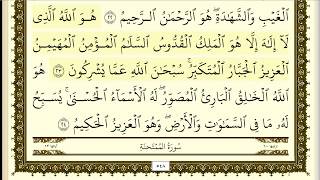 ٱلۡغَيۡبِ وَٱلشَّهَٰدَةِۖ هُوَ ٱلرَّحۡمَٰنُ ٱلرَّحِيمُ ٢٢ هُوَ ٱللَّهُ ٱلَّذِي
لَآ إِلَٰهَ إِلَّا هُوَ ٱلۡمَلِكُ ٱلۡقُدُّوسُ ٱلسَّلَٰمُ ٱلۡمُؤۡمِنُ ٱلۡمُهَيۡمِنُ
ٱلۡعَزِيزُ ٱلۡجَبَّارُ ٱلۡمُتَكَبِّرُۚ سُبۡحَٰنَ ٱللَّهِ عَمَّا يُشۡرِكُونَ ٢٣ هُوَ
ٱللَّهُ ٱلۡخَٰلِقُ ٱلۡبَارِئُ ٱلۡمُصَوِّرُۖ لَهُ ٱلۡأَسۡمَآءُ ٱلۡحُسۡنَىٰۚ يُسَبِّحُ
لَهُۥ مَا فِي ٱلسَّمَٰوَٰتِ وَٱلۡأَرۡضِۖ وَهُوَ ٱلۡعَزِيزُ ٱلۡحَكِيمُ ٢٤
سُورَةُ ٱلۡمُمۡتَحنَةِ
٥٤٨